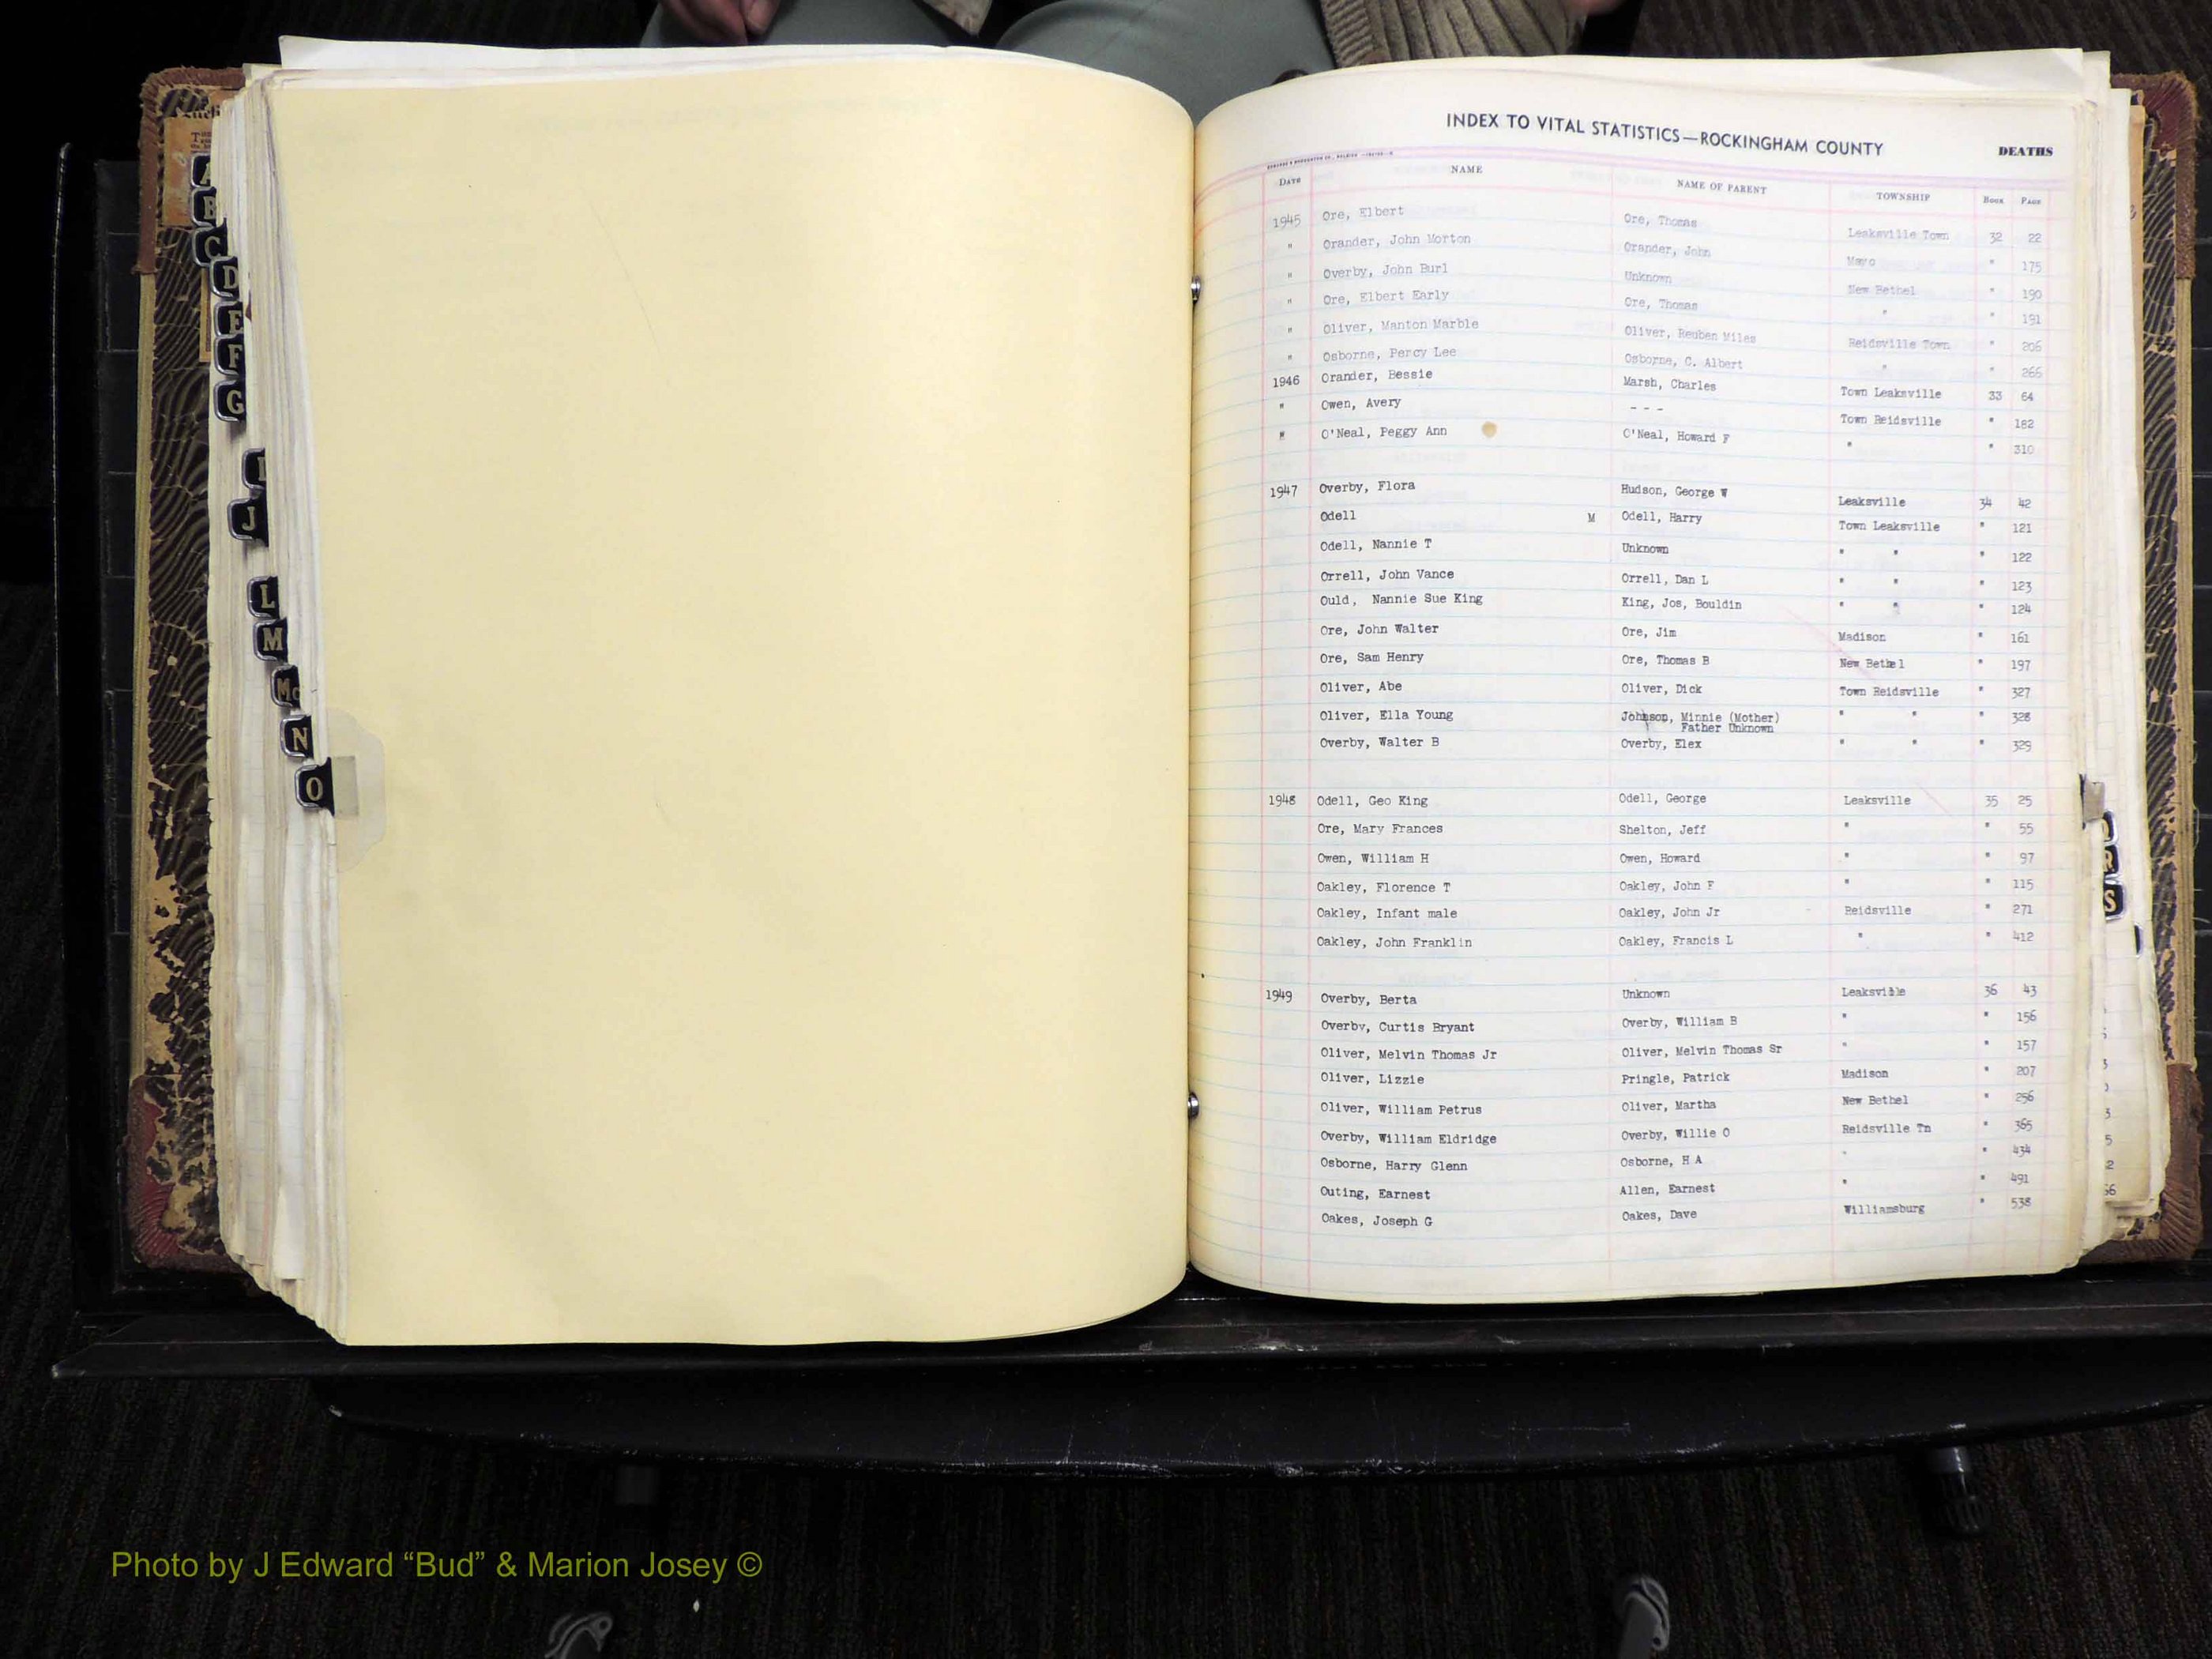 A
B
C
D
E
F
G
I
J
L
M
Mc
N
O
INDEX TO VITAL STATISTICS—ROCKINGHAM COUNTY DEATHS
DATE NAME NAME OF PARENT TOWNSHIP BOOK PAGE
1945 Ore, Elbert Ore, Thomas Leaksville Town 32 22
" Orander, John Morton Orander, John Mayo " 175
" Overby, John Burl Unknown New Bethel " 190
" Ore, Elbert Early Ore, Thomas " " 191
" Oliver, Manton Marble Oliver, Reuben Miles Reidsville Town " 206
" Osborne, Percy Lee Osborne, C. Albert " " 266
1946 Orander, Bessie Marsh, Charles Town Leaksville 33 64
" Owen, Avery - - - Town Reidsville " 182
" O'Neal, Peggy Ann O'Neal, Howard F " " 310
1947 Overby, Flora Hudson, George W Leaksville 34 42
Odell M Odell, Harry Town Leaksville " 121
Odell, Nannie T Unknown " " " 122
Orrell, John Vance Orrell, Dan L " " " 123
Ould, Nannie Sue King King, Jos, Bouldin " " " 124
Ore, John Walter Ore, Jim Madison " 161
Ore, Sam Henry Ore, Thomas B New Bethel " 197
Oliver, Abe Oliver, Dick Town Reidsville " 327
Oliver, Ella Young Johnson, Minnie (Mother) " " " 328
Father Unknown
Overby, Walter B Overby, Elex " " " 329
1948 Odell, Geo King Odell, George Leaksville 35 25
Ore, Mary Frances Shelton, Jeff " " 55
Owen, William H Owen, Howard " " 97
Oakley, Florence T Oakley, John F " " 115
Oakley, Infant male Oakley, John Jr Reidsville " 271
Oakley, John Franklin Oakley, Francis L " " 412
1949 Overby, Berta Unknown Leaksville 36 43
Overby, Curtis Bryant Overby, William B " " 156
Oliver, Melvin Thomas Jr Oliver, Melvin Thomas Sr " " 157
Oliver, Lizzie Pringle, Patrick Madison " 207
Oliver, William Petrus Oliver, Martha New Bethel " 256
Overby, William Eldridge Overby, Willie O Reidsville Tn " 365
Osborne, Harry Glenn Osborne, H A " " 434
Outing, Earnest Allen, Earnest " " 491
Oakes, Joseph G Oakes, Dave Williamsburg " 538
R
S
Photo by J Edward “Bud” & Marion Josey ©